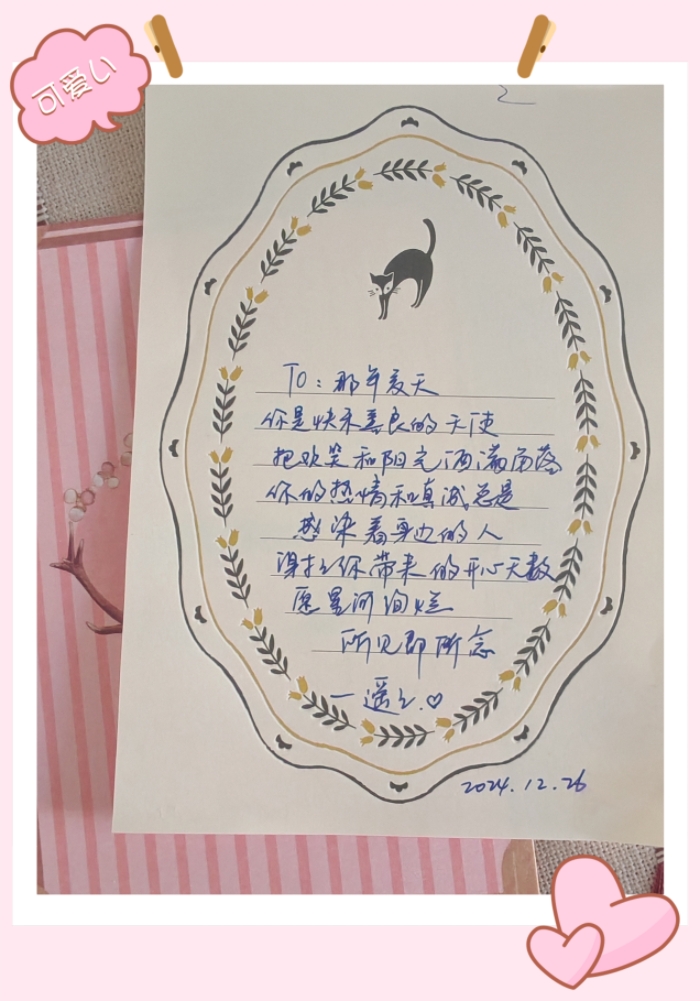 可爱い
To：那年夏天
你是快乐善良的天使
把欢笑和阳光洒满角落
你的热情和真诚总是
感染着身边的人
谢谢你带来的开心无数
愿星河绚烂
所见即所念
一遥之♡
2024.12.26